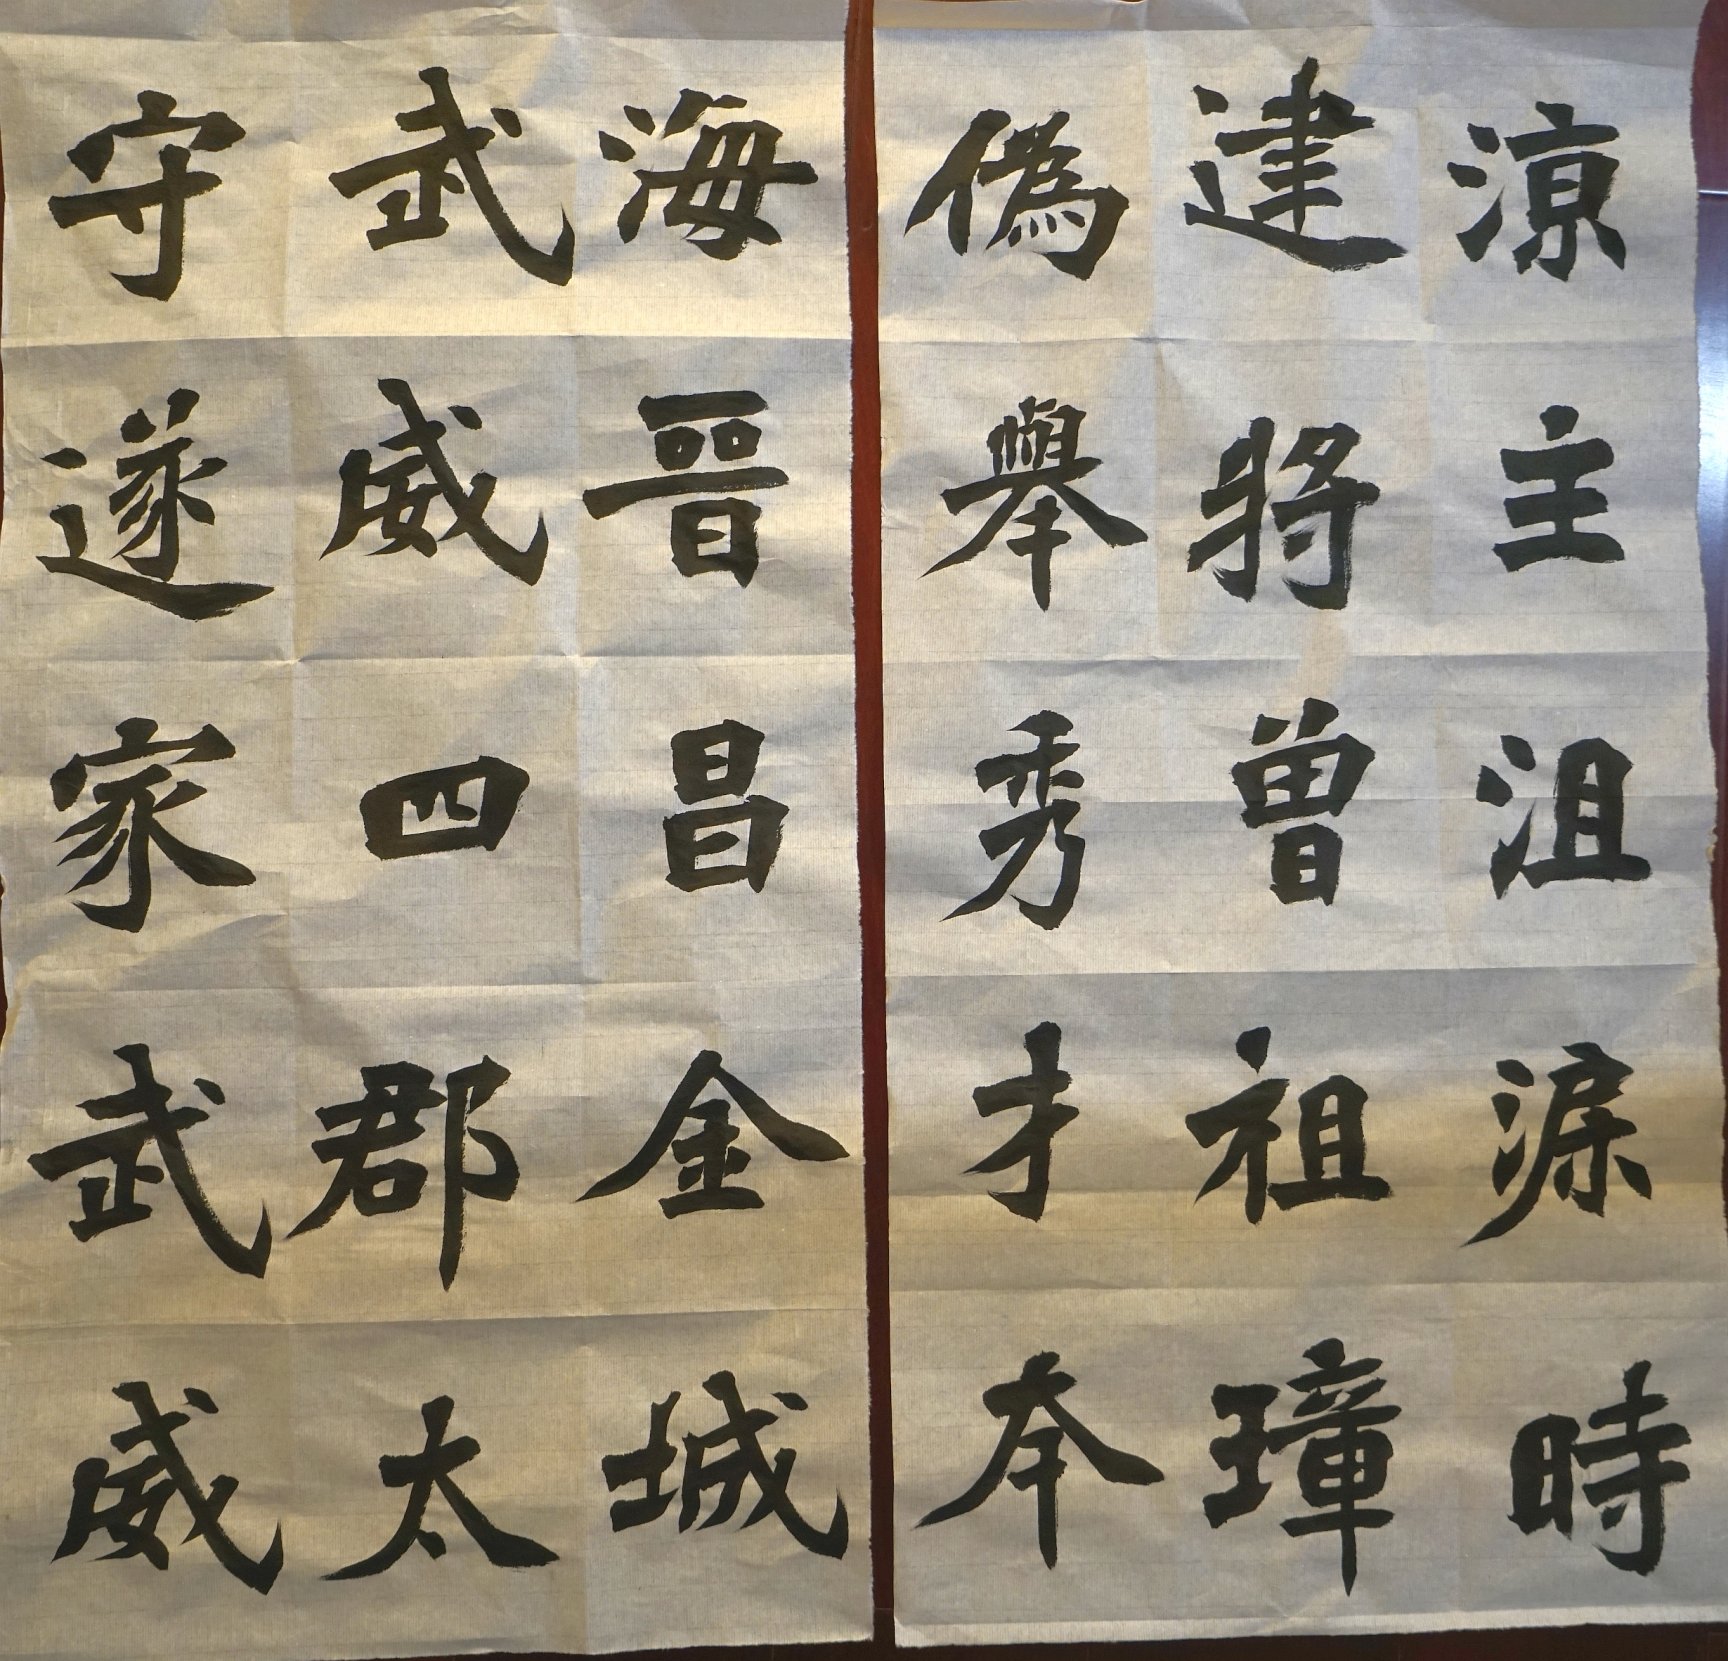 涼主沮渠時
建將曾祖璋
偽舉秀才本
海晉昌金城
武威四郡太
守遂家武威